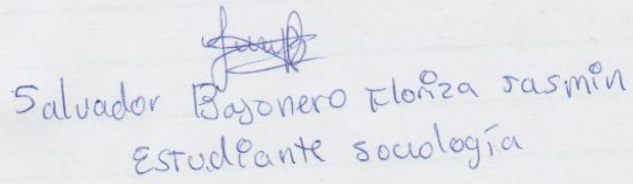 Salvador Bajonero Floriza Jasmin
Estudiante sociología